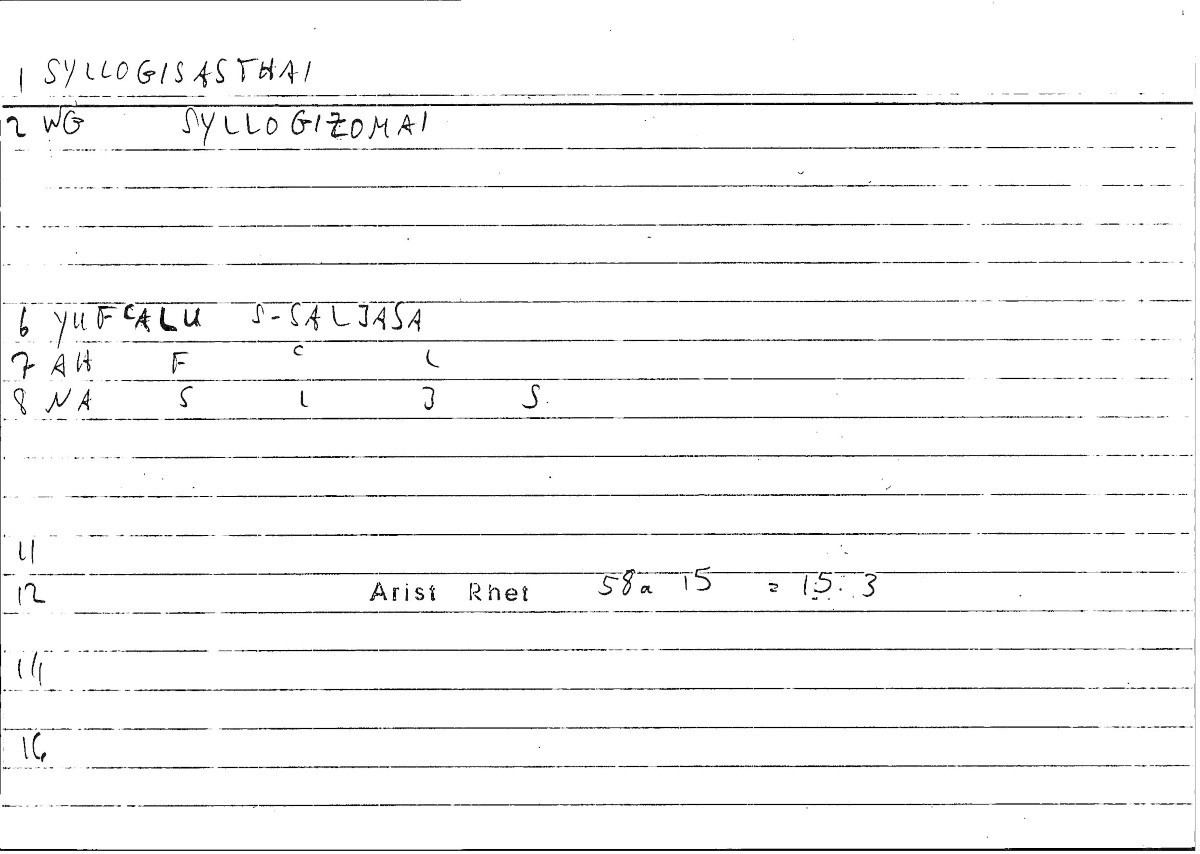 1 SYLLOGISASTHAI
2 WG SYLLOGIZOMAI
6 YUFcALU S-SALJASA
7 AH F c L
8 NA S L J S
11
12 Arist Rhet 58a 15 = 15.3
14
16